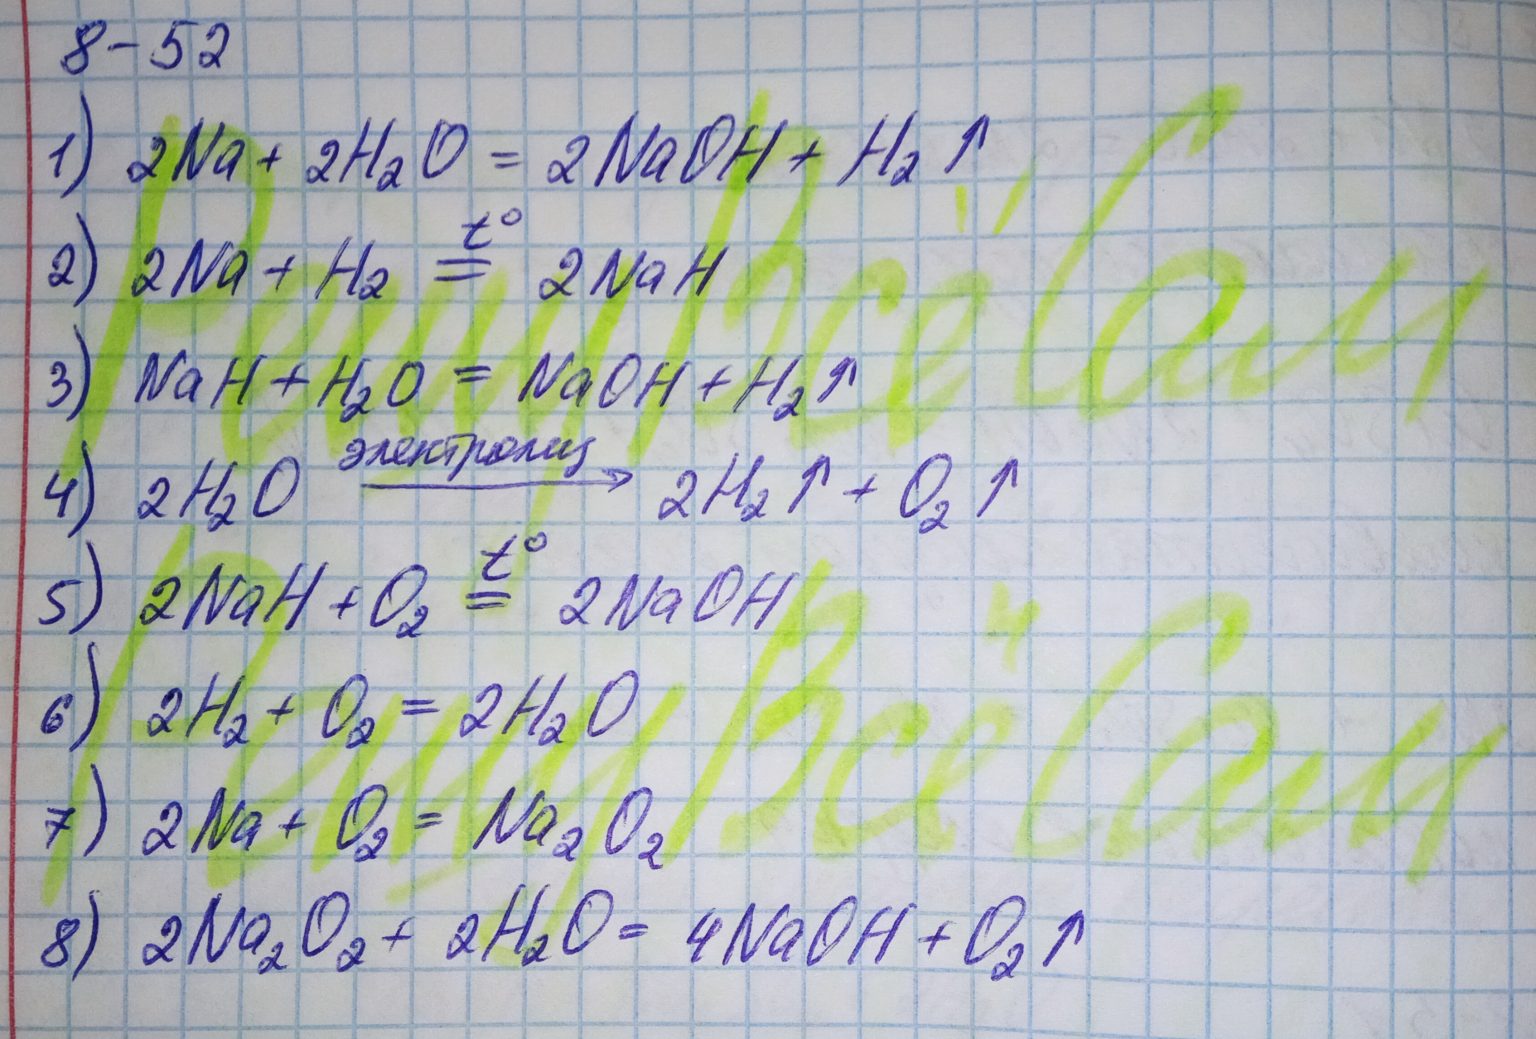 8-52
1) 2Na + 2H₂O = 2NaOH + H₂↑
t°
2) 2Na + H₂ = 2NaH
3) NaH + H₂O = NaOH + H₂↑
электролиз
4) 2H₂O → 2H₂↑ + O₂↑
t°
5) 2NaH + O₂ = 2NaOH
6) 2H₂ + O₂ = 2H₂O
7) 2Na + O₂ = Na₂O₂
8) 2Na₂O₂ + 2H₂O = 4NaOH + O₂↑
РешуВсёСам
РешуВсёСам